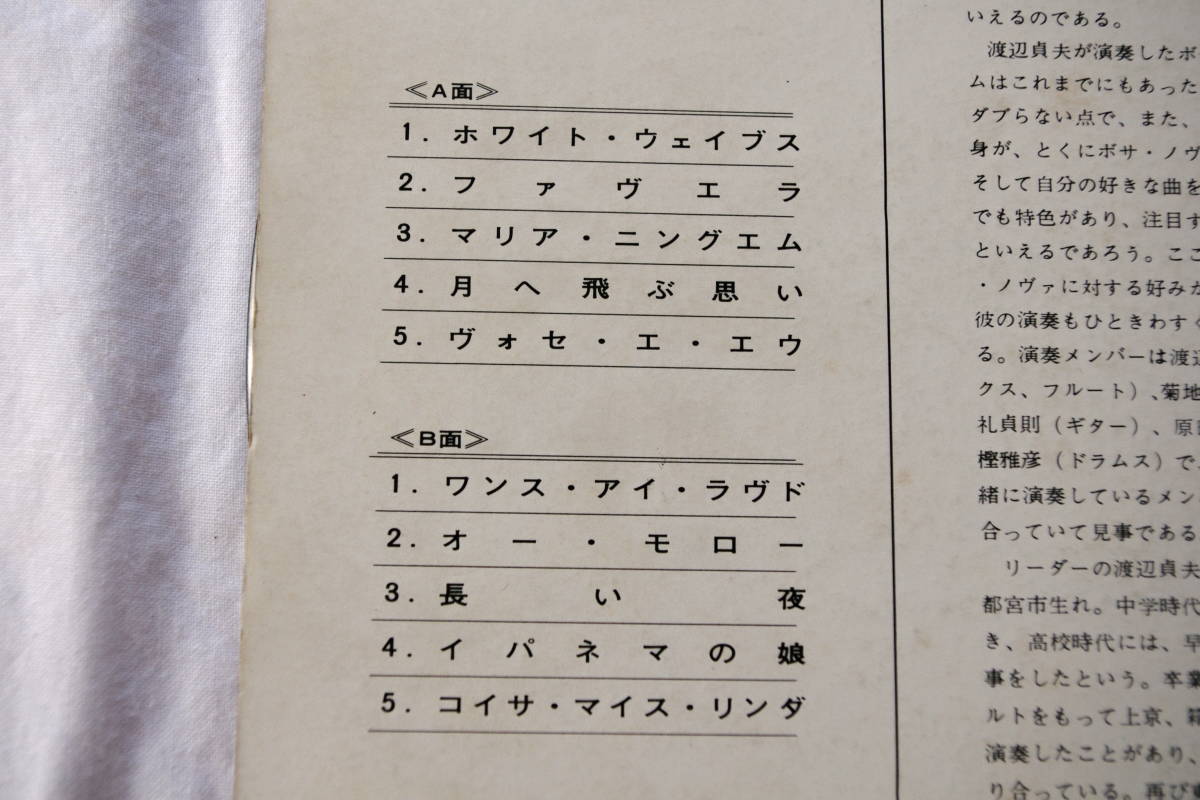 ≪A面≫
1. ホワイト・ウェイブス
2. ファヴエラ
3. マリア・ニングエム
4. 月へ飛ぶ思い
5. ヴォセ・エ・エウ
≪B面≫
1. ワンス・アイ・ラヴド
2. オー・モロー
3. 長い夜
4. イパネマの娘
5. コイサ・マイス・リンダ
いえるのである。
渡辺貞夫が演奏したボ
ムはこれまでにもあった
ダブらない点で、また、
身が、とくにボサ・ノヴ
そして自分の好きな曲を
でも特色があり、注目す
といえるであろう。ここ
・ノヴァに対する好みが
彼の演奏もひときわすぐ
る。演奏メンバーは渡辺
クス、フルート)、菊地
礼貞則(ギター)、原田
樫雅彦(ドラムス)で、
緒に演奏しているメン
合っていて見事である
リーダーの渡辺貞夫
都宮市生れ。中学時代
き、高校時代には、早
事をしたという。卒業
ルトをもって上京、箱
演奏したことがあり、
り合っている。再び